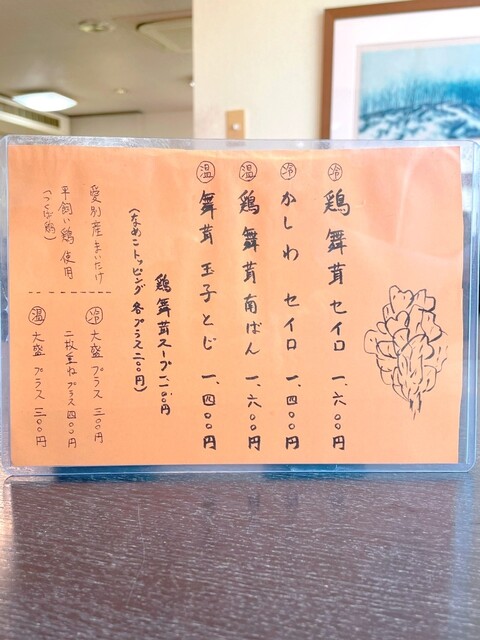 冷 鶏舞茸セイロ 一、六〇〇円
冷 かしわセイロ 一、四〇〇円
温 鶏舞茸南ばん 一、六〇〇円
温 舞茸玉子とじ 一、四〇〇円
鶏舞茸スープ
(なめこトッピング各プラス二〇〇円)
愛別産まいたけ
平飼い鶏使用
冷 大盛プラス 三〇〇円
二枚重ねプラス 四〇〇円
温 大盛プラス 三〇〇円